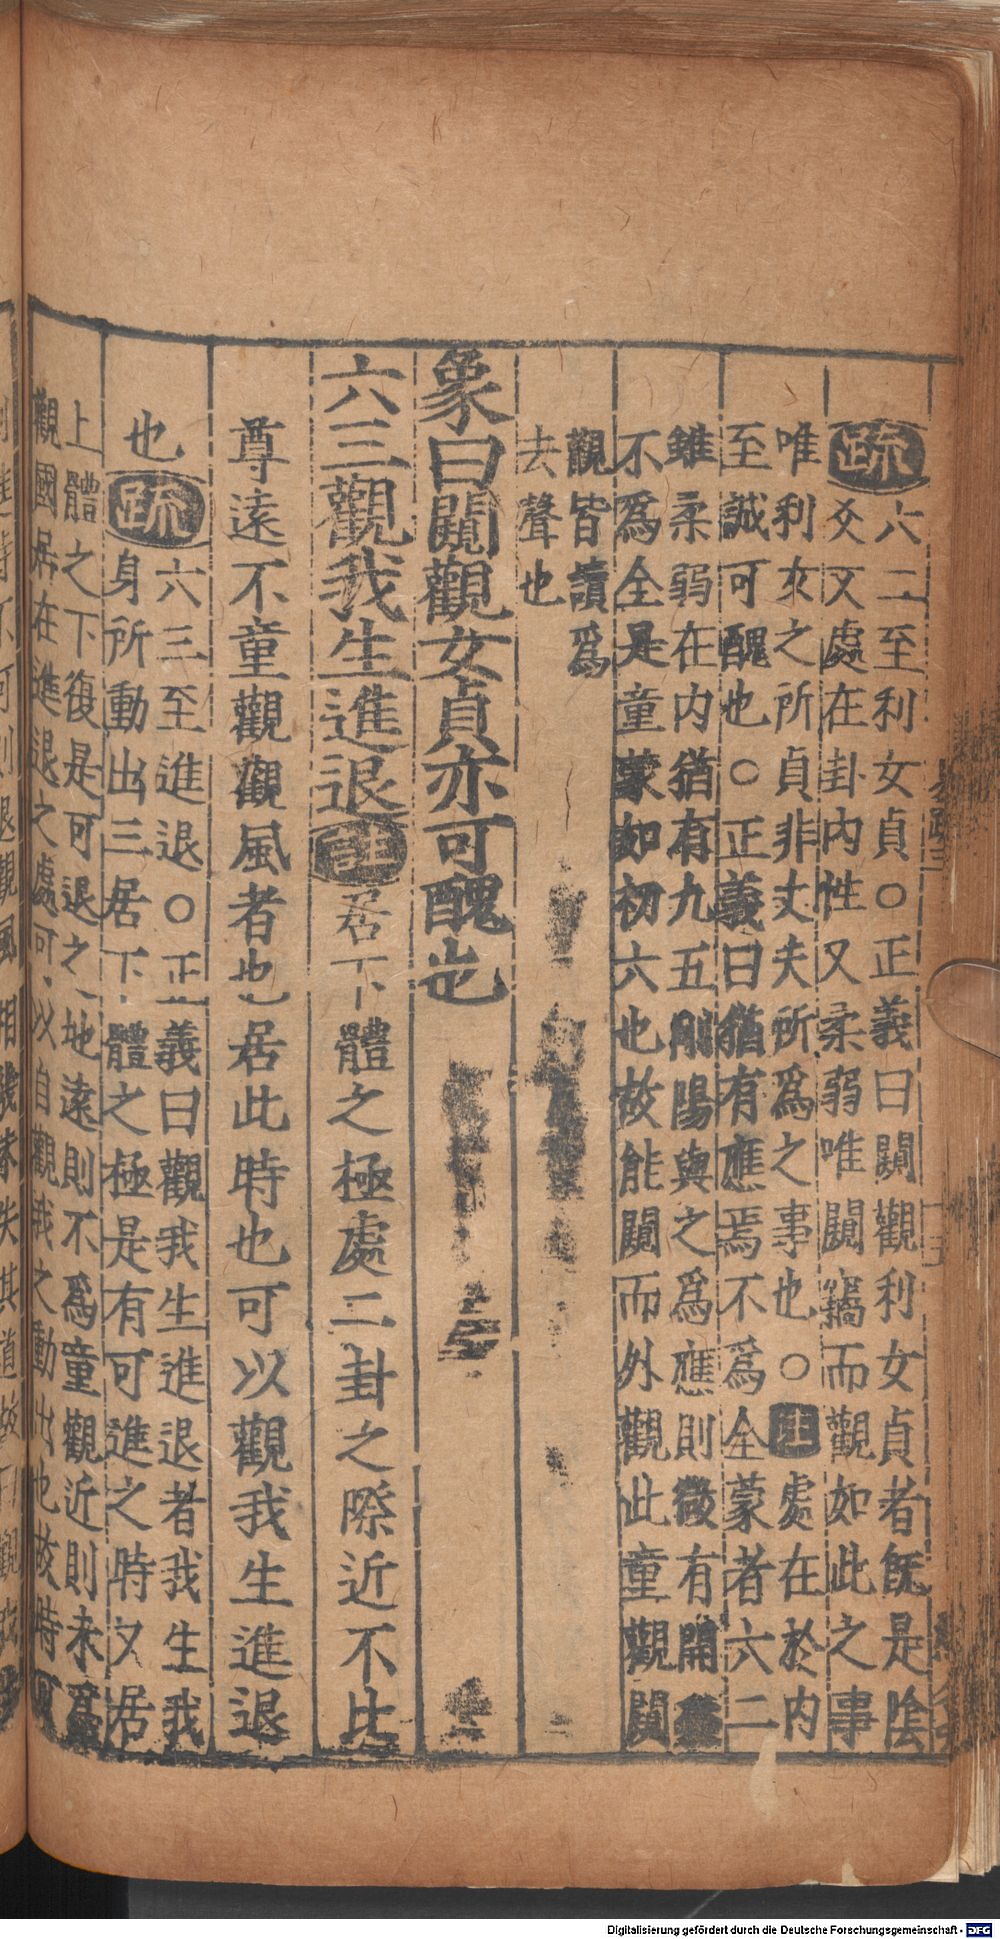 疏六二至利女貞○正義曰闚觀利女貞者旣是陰
爻又處在卦內性又柔弱唯闚竊而觀如此之事
唯利女之所貞非丈夫所爲之事也○注處在於內
至誠可醜也○正義曰猶有應焉不爲全蒙者六二
雖柔弱在內猶有九五剛陽與之爲應則微有開
不爲全是童蒙如初六也故能闚而外觀此童觀闚
觀皆讀爲
去聲也
象曰闚觀女貞亦可醜也
六三觀我生進退註居下體之極處二卦之際近不比
尊遠不童觀觀風者也居此時也可以觀我生進退
也疏六三至進退○正義曰觀我生進退者我生我
身所動出三居下體之極是有可進之時又居
上體之下復是可退之地遠則不爲童觀近則未爲
觀國居在進退之處可以自觀我之動出也故時可
Digitalisierung gefördert durch die Deutsche Forschungsgemeinschaft - DFG